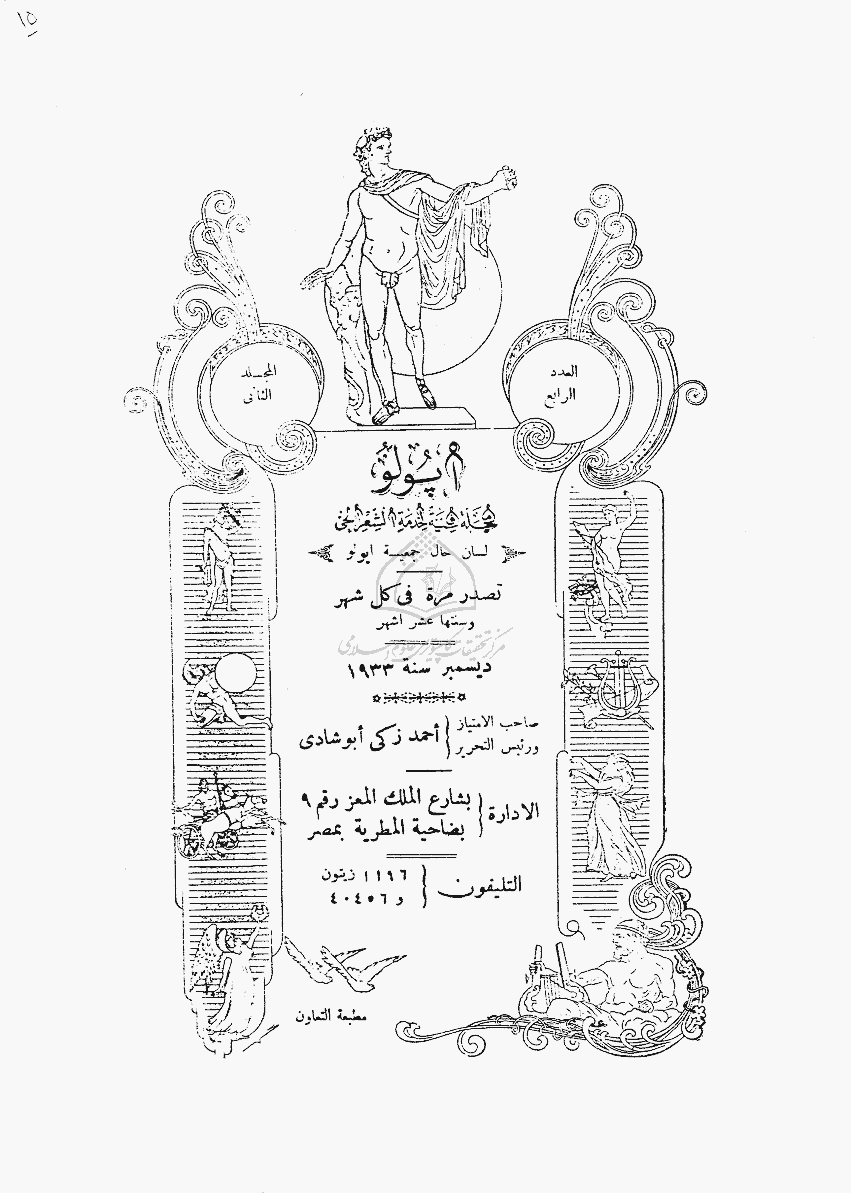 ١٥
العدد
الرابع
المجلد
الثاني
أپولو
مجلة فنية لخدمة الشعر الحي
لسان حال جمعية ابولو
تصدر مرة في كل شهر
وسنتها عشر اشهر
مركز تحقيقات كامپيوتری علوم اسلامی
ديسمبر سنة ١٩٣٣
صاحب الامتياز
ورئيس التحرير
أحمد زكى أبو شادى
الادارة
بشارع الملك المعز رقم ٩
بضاحية المطرية بمصر
التليفون
١١٩٦ زيتون
و ٤٠٤٥٦
مطبعة التعاون